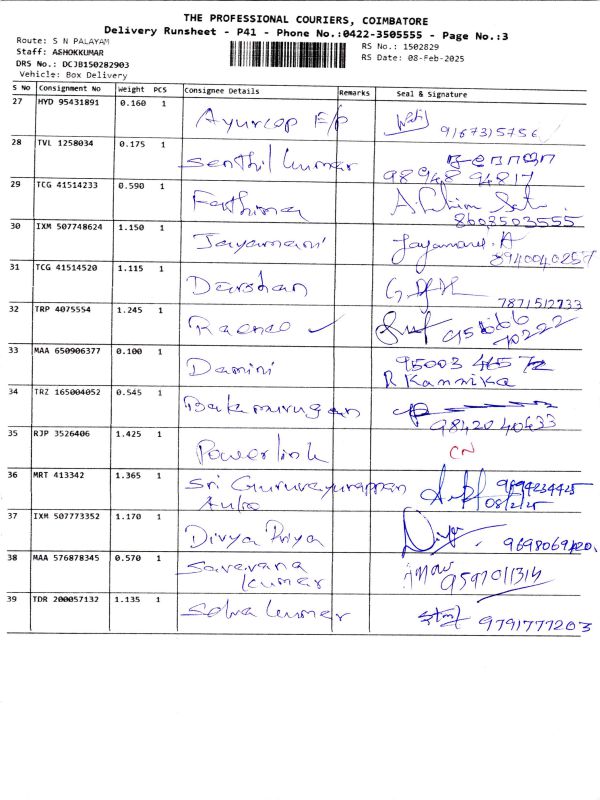 THE PROFESSIONAL COURIERS, COIMBATORE
Delivery Runsheet - P41 - Phone No.:0422-3505555 - Page No.:3
Route: S N PALAYAM
RS No.: 1502829
Staff: ASHOKKUMAR
RS Date: 08-Feb-2025
DRS No.: DCJB150282903
Vehicle: Box Delivery
S No Consignment No Weight PCS Consignee Details Remarks Seal & Signature
27 HYD 95431891 0.160 1 Ayurcop E/p
9167315756
28 TVL 1258034 0.175 1 Senthil kumar
98948 94817
29 TCG 41514233 0.590 1 Fathima
8603503555
30 IXM 507748624 1.150 1 Jayamani Jayamani. A
8940040257
31 TCG 41514520 1.115 1 Darshan
7871512733
32 TRP 4075554 1.245 1
33 MAA 650906377 0.100 1 Damini 95003
R Kannika
34 TRZ 165004052 0.545 1 Balamurugan
9842040633
35 RJP 3526406 1.425 1 Powerlink CN
36 MRT 413342 1.365 1 Sri Guruvayurappan
Auto 08/2/25
37 IXM 507773352 1.170 1 Divya Priya Divya
38 MAA 576878345 0.570 1 Saravana
kumar 9597011314
39 TDR 200057132 1.135 1 Selva kumar 9791777203